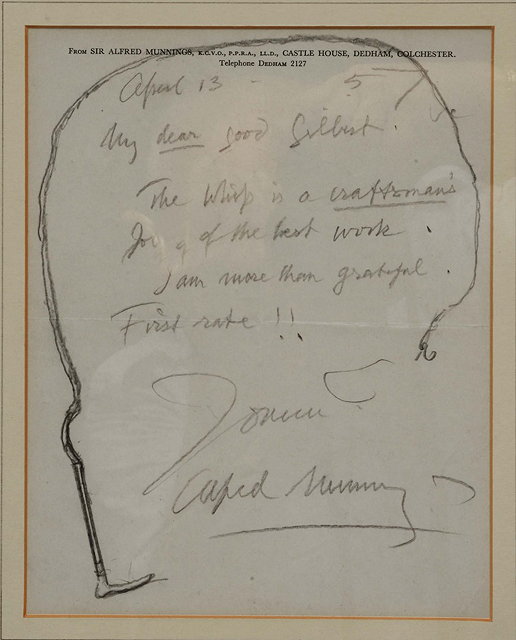 FROM SIR ALFRED MUNNINGS, K.C.V.O., P.P.R.A., LL.D., CASTLE HOUSE, DEDHAM, COLCHESTER.
Telephone DEDHAM 2127
April 13 - 57
My dear good Gilbert.
The Whip is a craftsman's
Joy & of the best work.
I am more than grateful.
First rate !!
Alfred Munnings